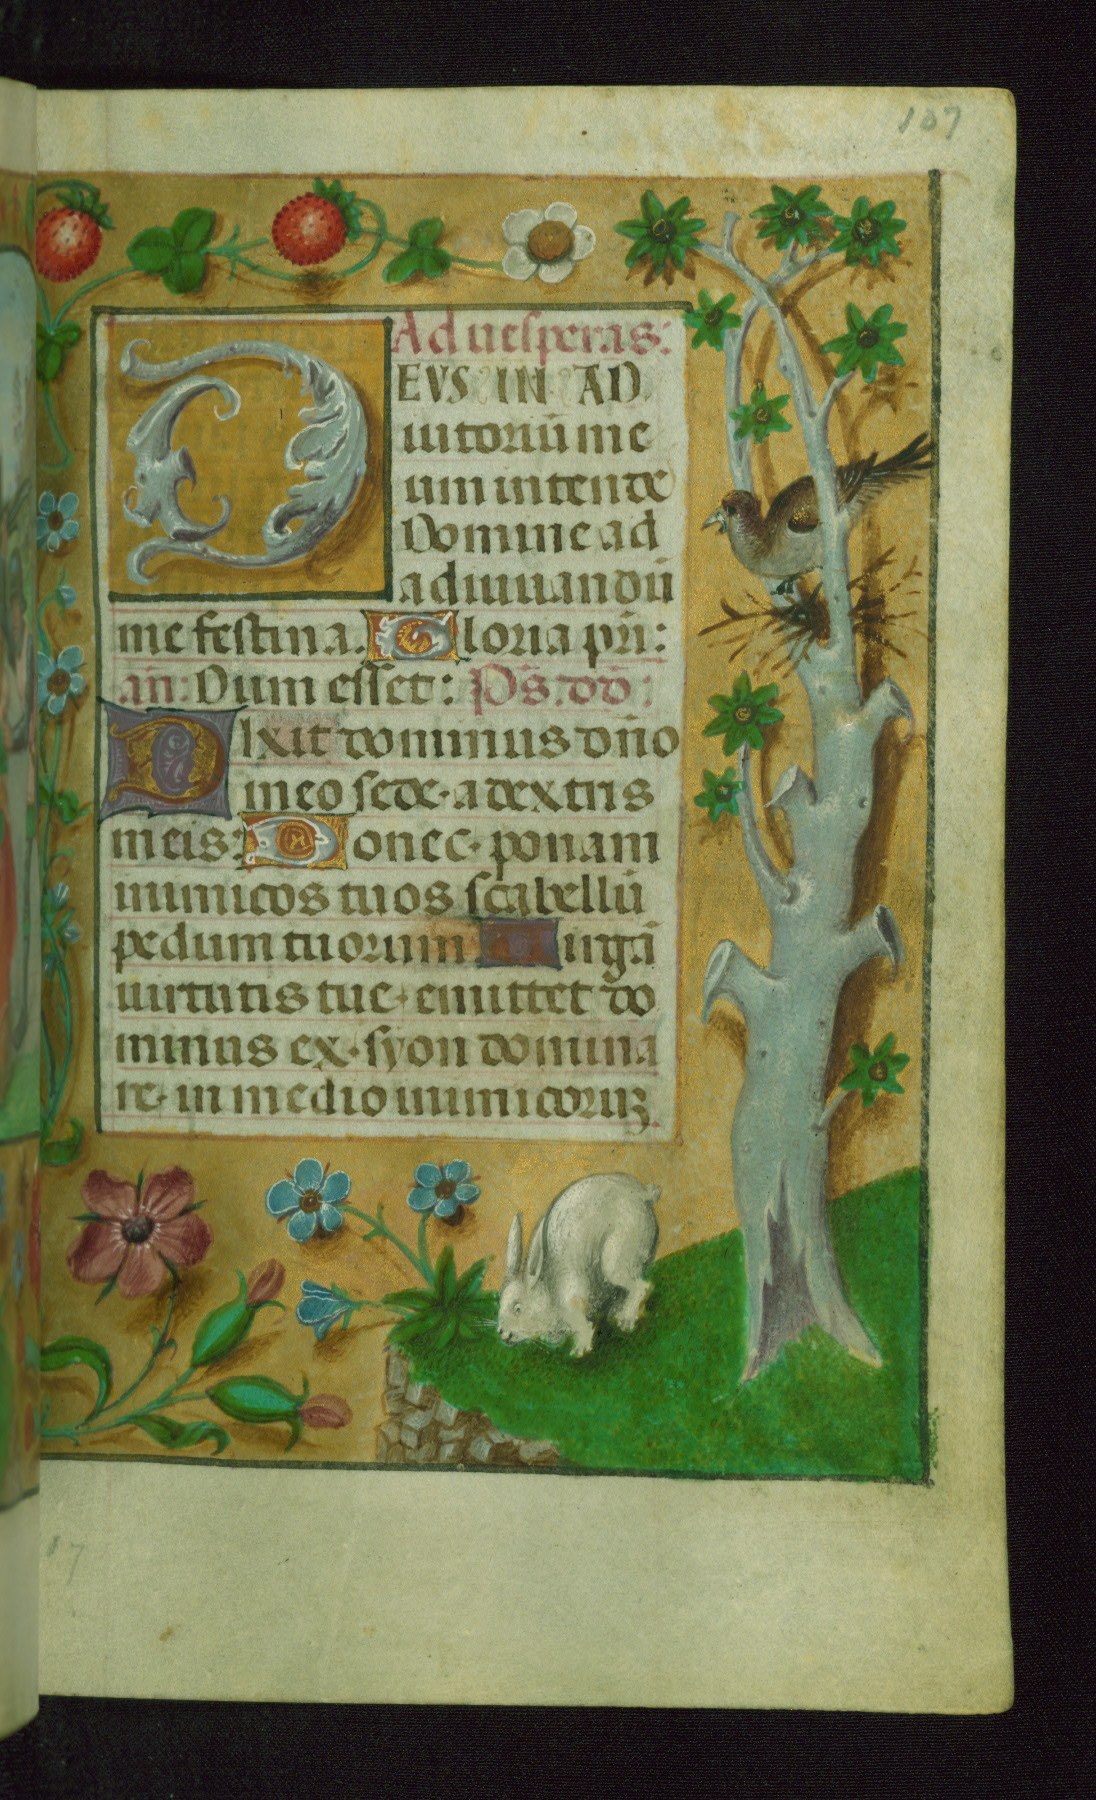 107
Ad uesperas:
DEVS IN AD
iutoriū me
um intende
Domine ad
adiuuandū
me festina. Gloria pr̄i:
an̄: Dum esset: Ps̄. dd̄:
Dixit dominus dn̄o
meo sede · a dextris
meis: Donec · ponam
inimicos tuos scabellū
pedum tuorum Uirgā
uirtutis tue · emittet do
minus ex · syon domina
re · in medio inimicoruꝫ